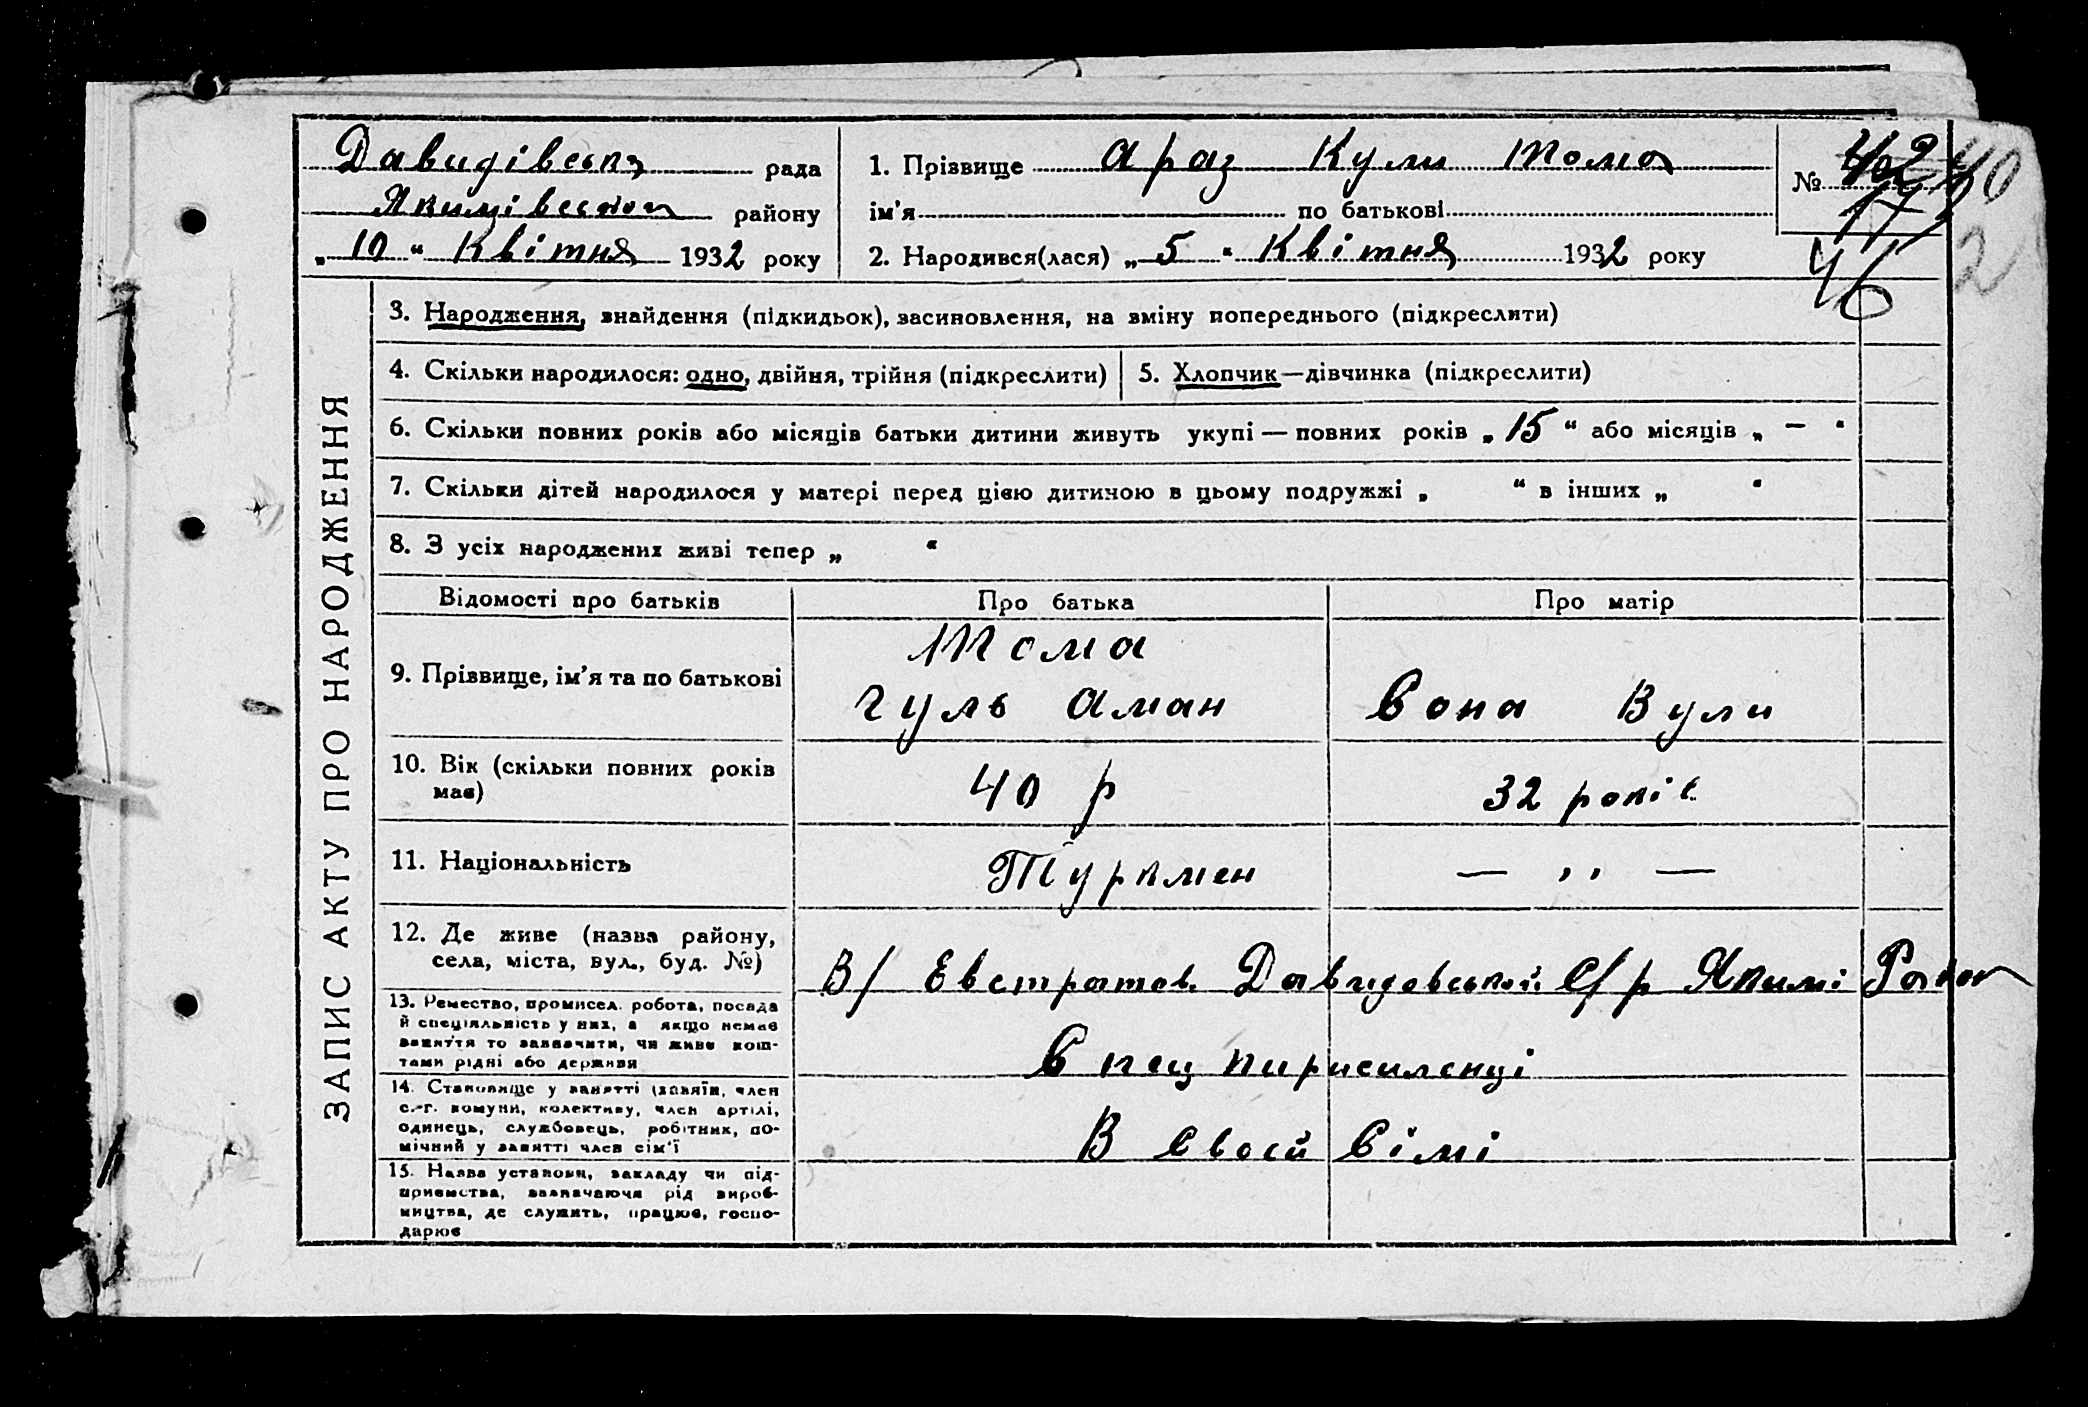 Давидівська рада
Якимівського району
„ 10 “ Квітня 1932 року
1. Прізвище Араз Кули Тома
ім'я по батькові
2. Народився(лася) „ 5 “ Квітня 1932 року
№ 42
17
46
40
2
ЗАПИС АКТУ ПРО НАРОДЖЕННЯ
3. Народження, знайдення (підкидьок), засиновлення, на зміну попереднього (підкреслити)
4. Скільки народилося: одно, двійня, трійня (підкреслити)
5. Хлопчик—дівчинка (підкреслити)
6. Скільки повних років або місяців батьки дитини живуть укупі — повних років „ 15 “ або місяців „ — “
7. Скільки дітей народилося у матері перед цією дитиною в цьому подружжі „ “ в інших „ “
8. З усіх народжених живі тепер „ “
Відомості про батьків Про батька Про матір
9. Прізвище, ім'я та по батькові
Тома
гуль Аман
Сона Вули
10. Вік (скільки повних років
має)
40 р
32 років
11. Національність
Туркмен
— ,, —
12. Де живе (назва району,
села, міста, вул., буд. №)
В/ Евстратов. Давидовськой С/р Якимі Район
13. Ремество, промисел. робота, посада
й спеціяльність у них, а якщо немає
заняття то зазначити, чи живе кош-
тами рідні або держави
Спец пириселенці
14. Становище у занятті (хазяїн, член
с.-г. комуни, колективу, член артілі,
одинець, службовець, робітник, по-
мічний у занятті член сім'ї
В своєй сімі
15. Назва установи, закладу чи під-
приємства, зазначаючи рід вироб-
ництва, де служить, працює, госпо-
дарює